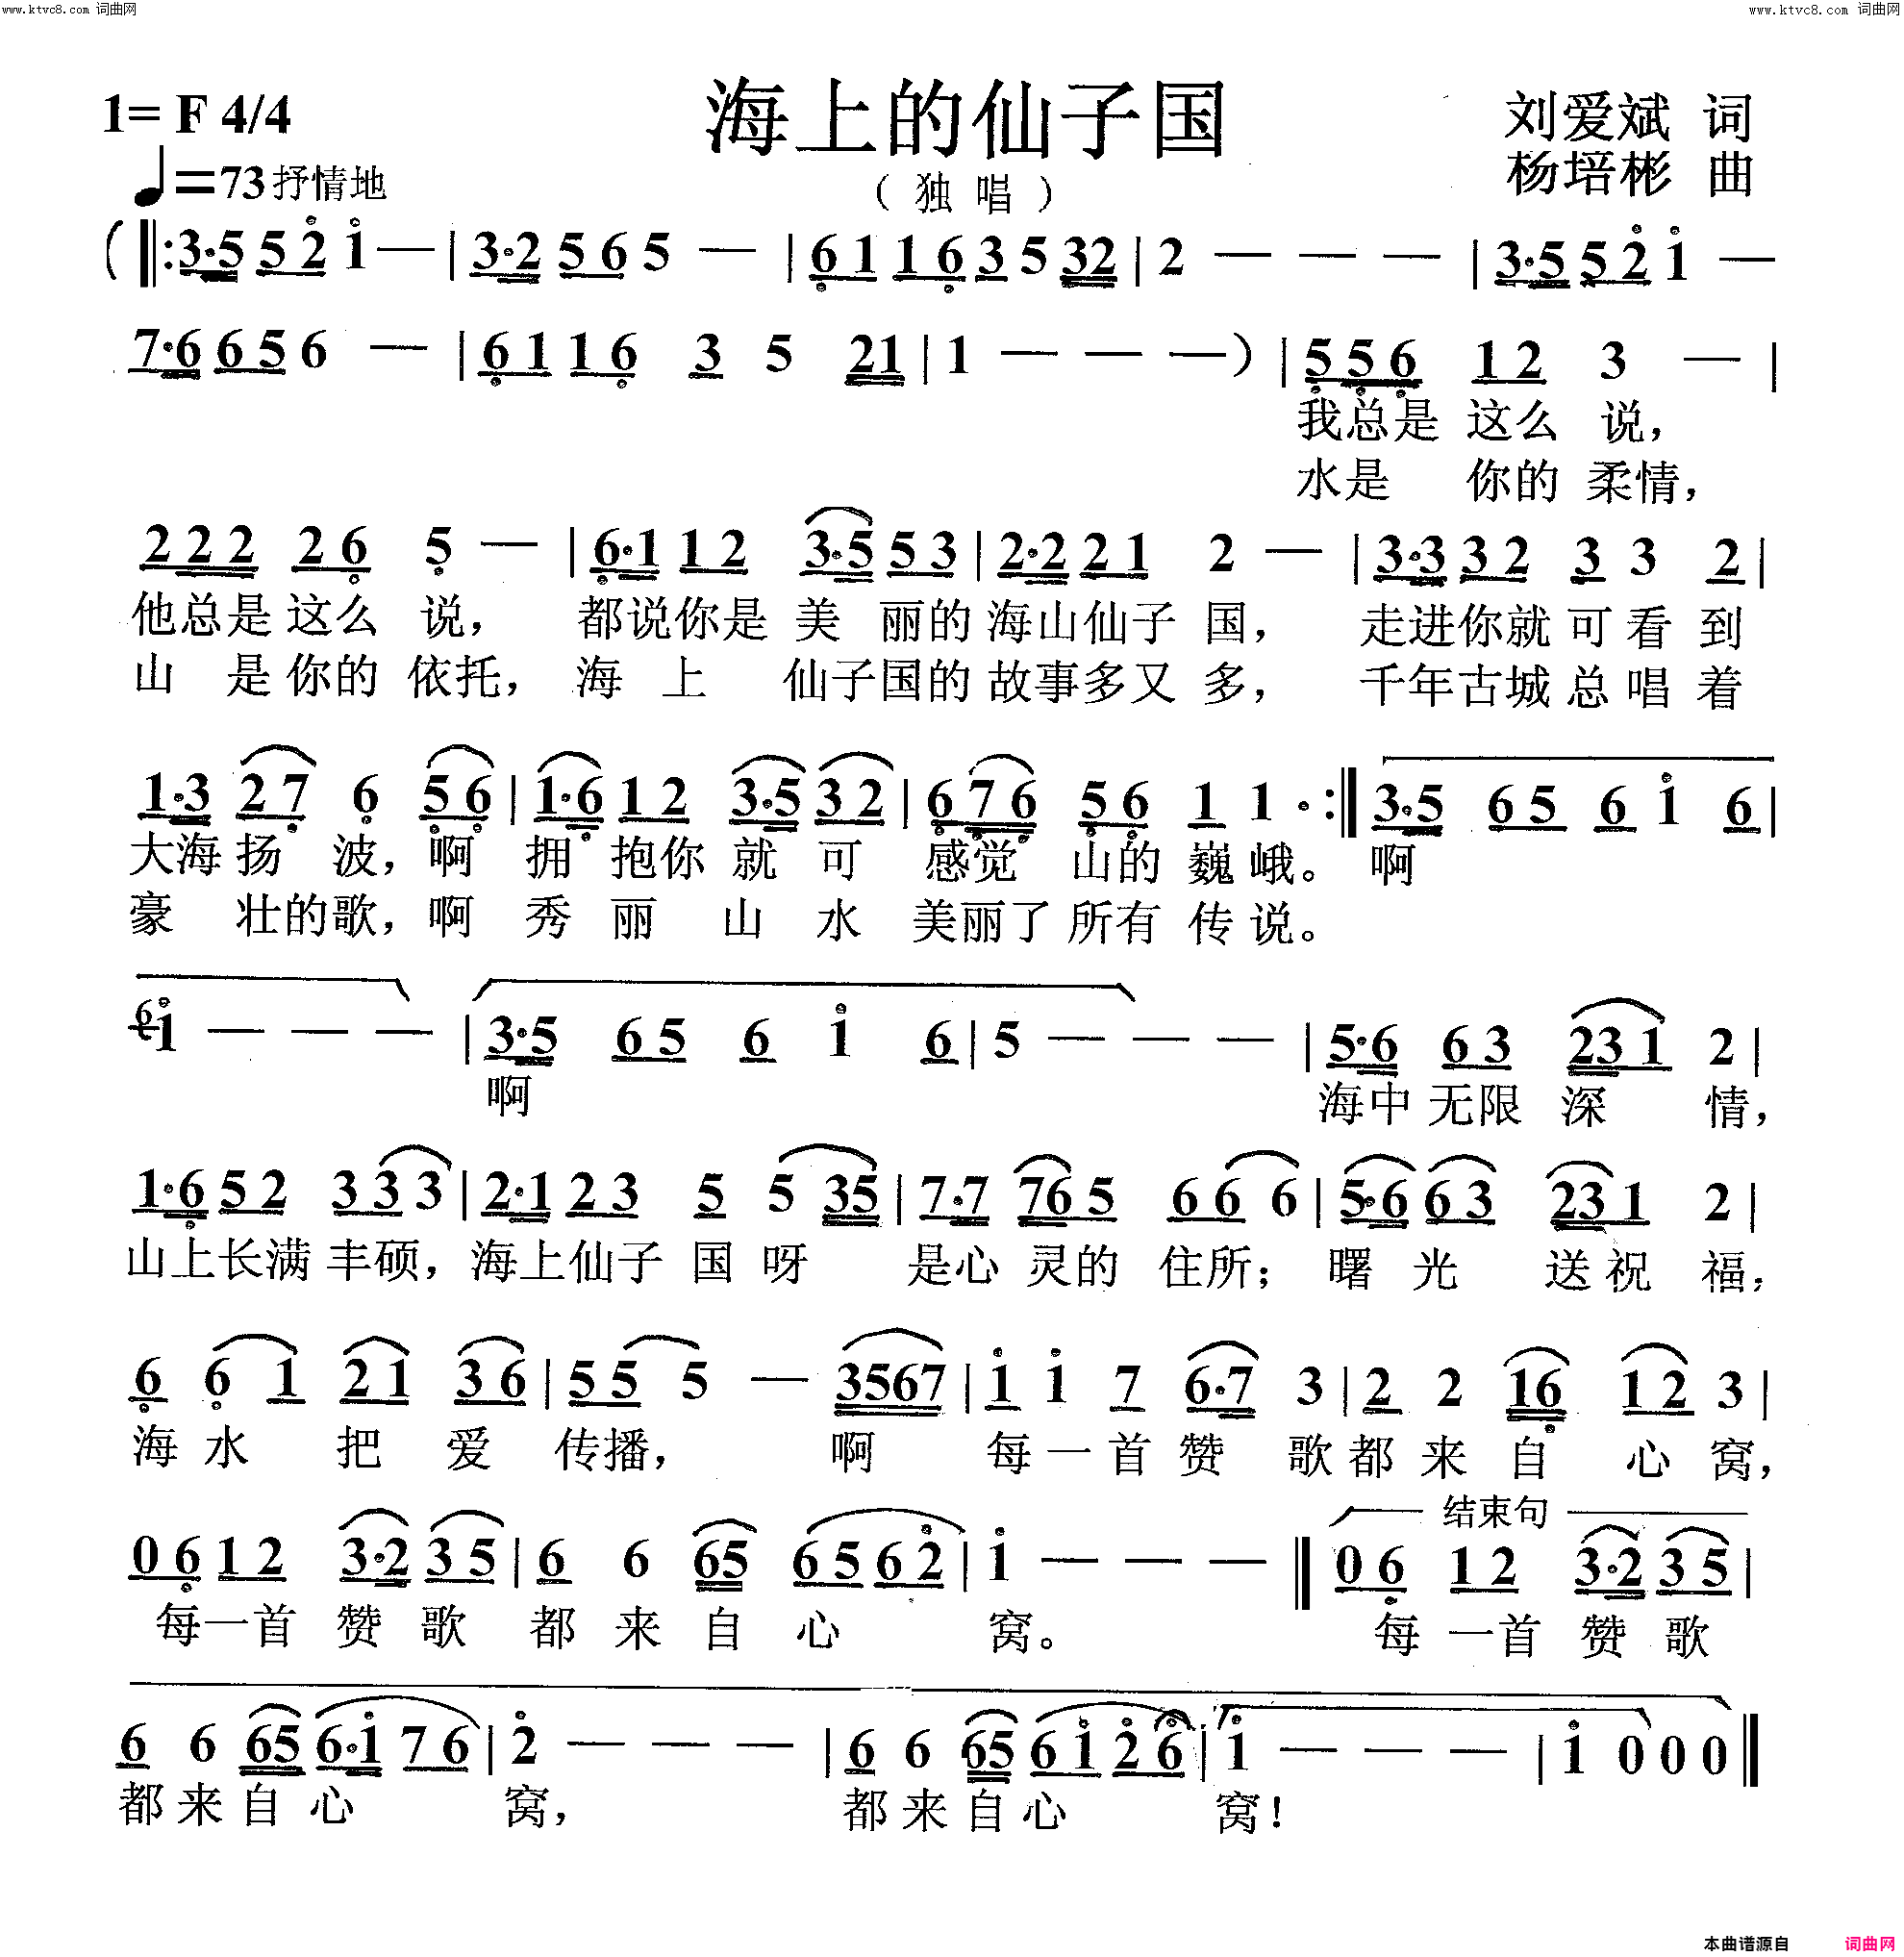 www.ktvc8.com 词曲网
www.ktvc8.com 词曲网
1= F 4/4
海上的仙子国
刘爱斌 词
♩=73 抒情地
(独唱)
杨培彬 曲
(‖:3·5 5 2̇ 1̇ — | 3·2 5 6 5 — | 6̣ 1 1 6̣ 3 5 32 | 2 — — — | 3·5 5 2̇ 1̇ —
7·6 6 5 6 — | 6̣ 1 1 6̣ 3 5 21 | 1 — — —) | 5̣ 5̣ 6̣ 1 2 3 — |
我总是 这么 说,
水是 你的 柔情,
2 2 2 2 6̣ 5̣ — | 6̣·1 1 2 3·5 5 3 | 2·2 2 1 2 — | 3·3 3 2 3 3 2 |
他总是 这么 说, 都说你是 美 丽的 海山仙子 国, 走进你就 可 看 到
山 是 你的 依托, 海 上 仙子国的 故事多又 多, 千年古城 总 唱 着
1·3 2 7̣ 6̣ 5̣ 6̣ | 1·6̣ 1 2 3·5 3 2 | 6̣ 7̣ 6̣ 5̣ 6̣ 1 1 · :‖ 3·5 6 5 6 1̇ 6 |
大海 扬 波, 啊 拥 抱你 就 可 感觉 山的 巍 峨。 啊
豪 壮的歌, 啊 秀 丽 山 水 美丽了 所有 传 说。
6 1̇ — — — | 3·5 6 5 6 1̇ 6 | 5 — — — | 5·6 6 3 23 1 2 |
啊 海中 无限 深 情,
1·6̣ 5 2 3 3 3 | 2·1 2 3 5 5 35 | 7·7 76 5 6 6 6 | 5·6 6 3 23 1 2 |
山上长满 丰硕, 海上仙子 国 呀 是心 灵的 住所; 曙 光 送 祝 福,
6̣ 6̣ 1 2 1 3 6 | 5 5 5 — 3567 | 1̇ 1̇ 7 6·7 3 | 2 2 16̣ 1 2 3 |
海 水 把 爱 传播, 啊 每 一 首 赞 歌 都 来 自 心 窝,
结束句
0 6̣ 1 2 3·2 3 5 | 6 6 65 6 5 6 2̇ | 1̇ — — — ‖ 0 6̣ 1 2 3·2 3 5 |
每一首 赞 歌 都 来 自 心 窝。 每 一首 赞 歌
6 6 65 6·1̇ 7 6 | 2̇ — — — | 6 6 65 6 1̇ 2̇ 6̇ | 1̇ — — — | 1̇ 0 0 0 ‖
都 来 自 心 窝, 都 来 自 心 窝!
本曲谱源自 词曲网